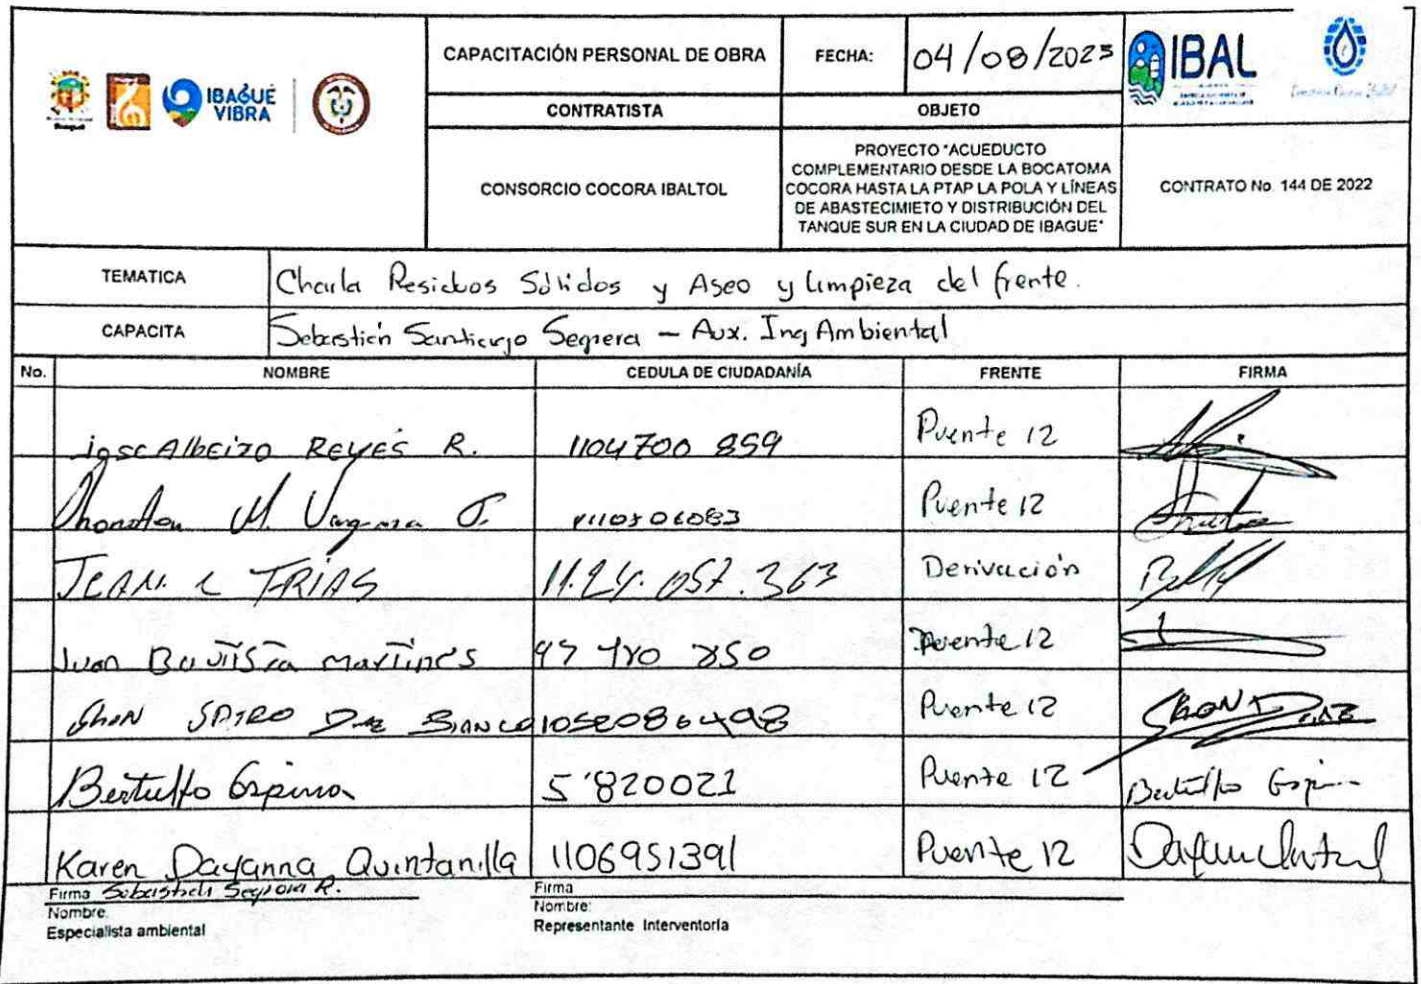 IBAGUÉ
VIBRA
CAPACITACIÓN PERSONAL DE OBRA
FECHA:
04/08/2023
IBAL
CONTRATISTA
OBJETO
CONSORCIO COCORA IBALTOL
PROYECTO "ACUEDUCTO
COMPLEMENTARIO DESDE LA BOCATOMA
COCORA HASTA LA PTAP LA POLA Y LÍNEAS
DE ABASTECIMIETO Y DISTRIBUCIÓN DEL
TANQUE SUR EN LA CIUDAD DE IBAGUE"
CONTRATO No. 144 DE 2022
TEMATICA
Charla Residuos Sólidos y Aseo y limpieza del frente.
CAPACITA
Sebastián Santiago Segrera - Aux. Ing Ambiental
No. NOMBRE CEDULA DE CIUDADANÍA FRENTE FIRMA
jose Albeizo REYES R. 1104700 859 Puente 12
M. 1110506083 Puente 12
JEAN. C FRIAS 11.24.057.363 Derivación
Juan Bautista martines Puente 12
Jhon 1052086498 Puente 12 Jhon Diaz
Bertulfo Espinosa 5'820021 Puente 12 Bertulfo
Karen Dayanna Quintanilla 1106951391 Puente 12
Firma Sebastián Segrera R.
Nombre.
Especialista ambiental
Firma
Nombre:
Representante Interventoria